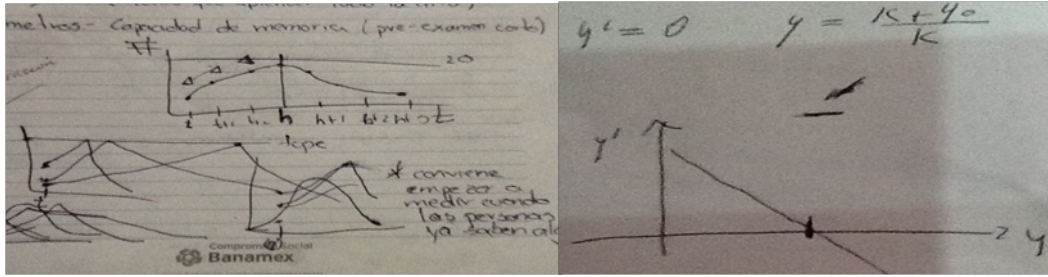 metros - Capacidad de memoria (pre-examen corto)
#
20
t t+1 h h+1 h+2
kpe
* conviene
empezar a
medir cuando
las personas
ya saben alg
Compromiso Social
Banamex
y' = 0 y = K + y0 / K
y'
y